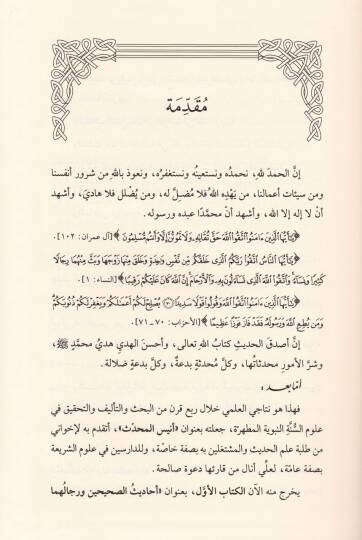 مُقَدِّمَة
إنَّ الحمدَ للهِ، نحمدُه ونستعينُه ونستغفرُه، ونعوذ باللهِ من شرور أنفسنا
ومن سيئات أعمالنا، من يَهْدِه اللهُ فلا مُضلَّ له، ومن يُضْلل فلا هاديَ، وأشهد
أنْ لا إله إلا الله، وأشهد أنَّ محمَّدًا عبده ورسوله.
﴿يَٰٓأَيُّهَا ٱلَّذِينَ ءَامَنُوا۟ ٱتَّقُوا۟ ٱللَّهَ حَقَّ تُقَاتِهِۦ وَلَا تَمُوتُنَّ إِلَّا وَأَنتُم مُّسْلِمُونَ﴾ [آل عمران: ١٠٢].
﴿يَٰٓأَيُّهَا ٱلنَّاسُ ٱتَّقُوا۟ رَبَّكُمُ ٱلَّذِى خَلَقَكُم مِّن نَّفْسٍ وَٰحِدَةٍ وَخَلَقَ مِنْهَا زَوْجَهَا وَبَثَّ مِنْهُمَا رِجَالًا
كَثِيرًا وَنِسَآءً وَٱتَّقُوا۟ ٱللَّهَ ٱلَّذِى تَسَآءَلُونَ بِهِۦ وَٱلْأَرْحَامَ إِنَّ ٱللَّهَ كَانَ عَلَيْكُمْ رَقِيبًا﴾ [النساء: ١].
﴿يَٰٓأَيُّهَا ٱلَّذِينَ ءَامَنُوا۟ ٱتَّقُوا۟ ٱللَّهَ وَقُولُوا۟ قَوْلًا سَدِيدًا ۝ يُصْلِحْ لَكُمْ أَعْمَٰلَكُمْ وَيَغْفِرْ لَكُمْ ذُنُوبَكُمْ
وَمَن يُطِعِ ٱللَّهَ وَرَسُولَهُۥ فَقَدْ فَازَ فَوْزًا عَظِيمًا﴾ [الأحزاب: ٧٠-٧١].
إنَّ أصدقَ الحديثِ كتابُ اللهِ تعالى، وأحسنَ الهدي هديُ محمَّدٍ ﷺ،
وشرَّ الأمورِ محدثاتُها، وكلَّ مُحدثةٍ بدعةٌ، وكلَّ بدعةٍ ضلالة.
أمّا بعد:
فهذا هو نتاجي العلمي خلال ربع قرن من البحث والتأليف والتحقيق في
علوم السُّنَّةِ النبوية المطهرَّة، جعلته بعنوان «أنيس المحدِّث»، أتقدم به لإخواني
من طلبة علم الحديث والمشتغلين به بصفة خاصَّة، وللدارسين في علوم الشريعة
بصفة عامّة، لعلَّي أنال من قارئها دعوة صالحة.
يخرج منه الآن الكتاب الأوَّل، بعنوان «أحاديثُ الصحيحين ورجالُهما